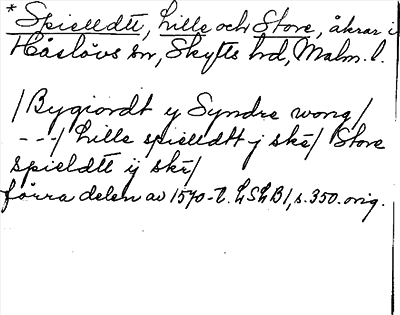 * Spielldtt, Lille och Store, åkrar i
Håslövs sn, Skytts hd, Malm. l.
/Bygiordt y Syndre wong/
---/ Lille spielldtt j skē/ Store
spieldtt ij skē/
förra delen av 1570-t. LSLB1, s. 350. orig.